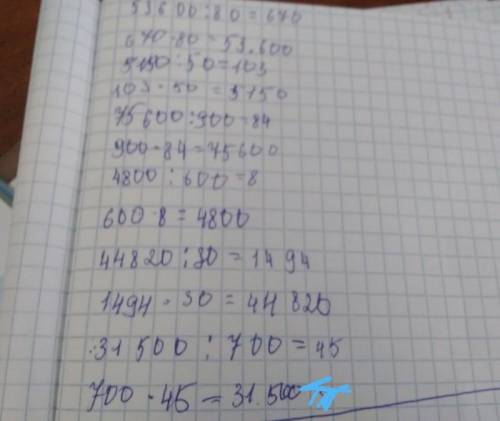 53600:80=670
670·80=53.600
5150:50=103
103·50=5150
75600:900=84
900·84=75600
4800:600=8
600·8=4800
44820:30=1494
1494·30=44820
31500:700=45
700·45=31.500